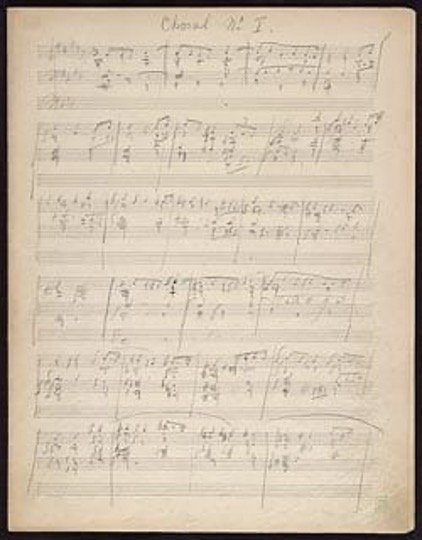 Choral No I.